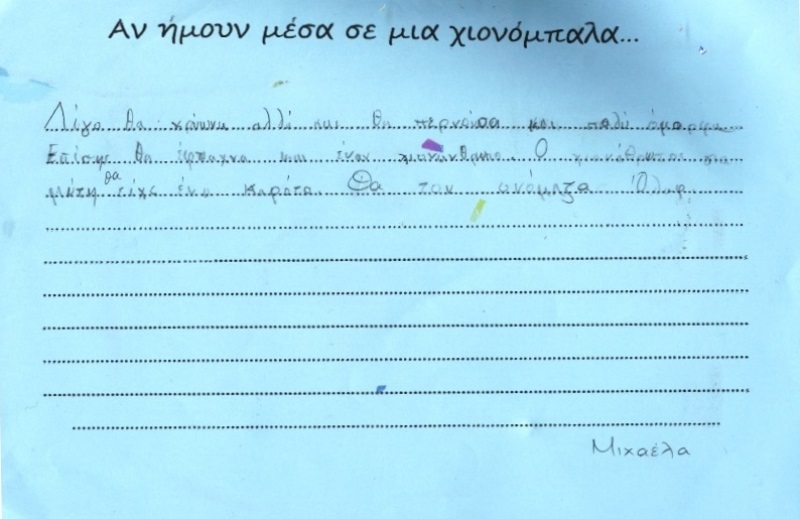 Αν ήμουν μέσα σε μια χιονόμπαλα...
Λίγο θα κρύωνα αλλά και θα περνούσα και πολύ όμορφα.
Επίσης θα έφτιαχνα και έναν Ο για
μύτη θα είχε ένα καρότο. Θα τον ονόμαζα Όλαφ.
Μιχαέλα